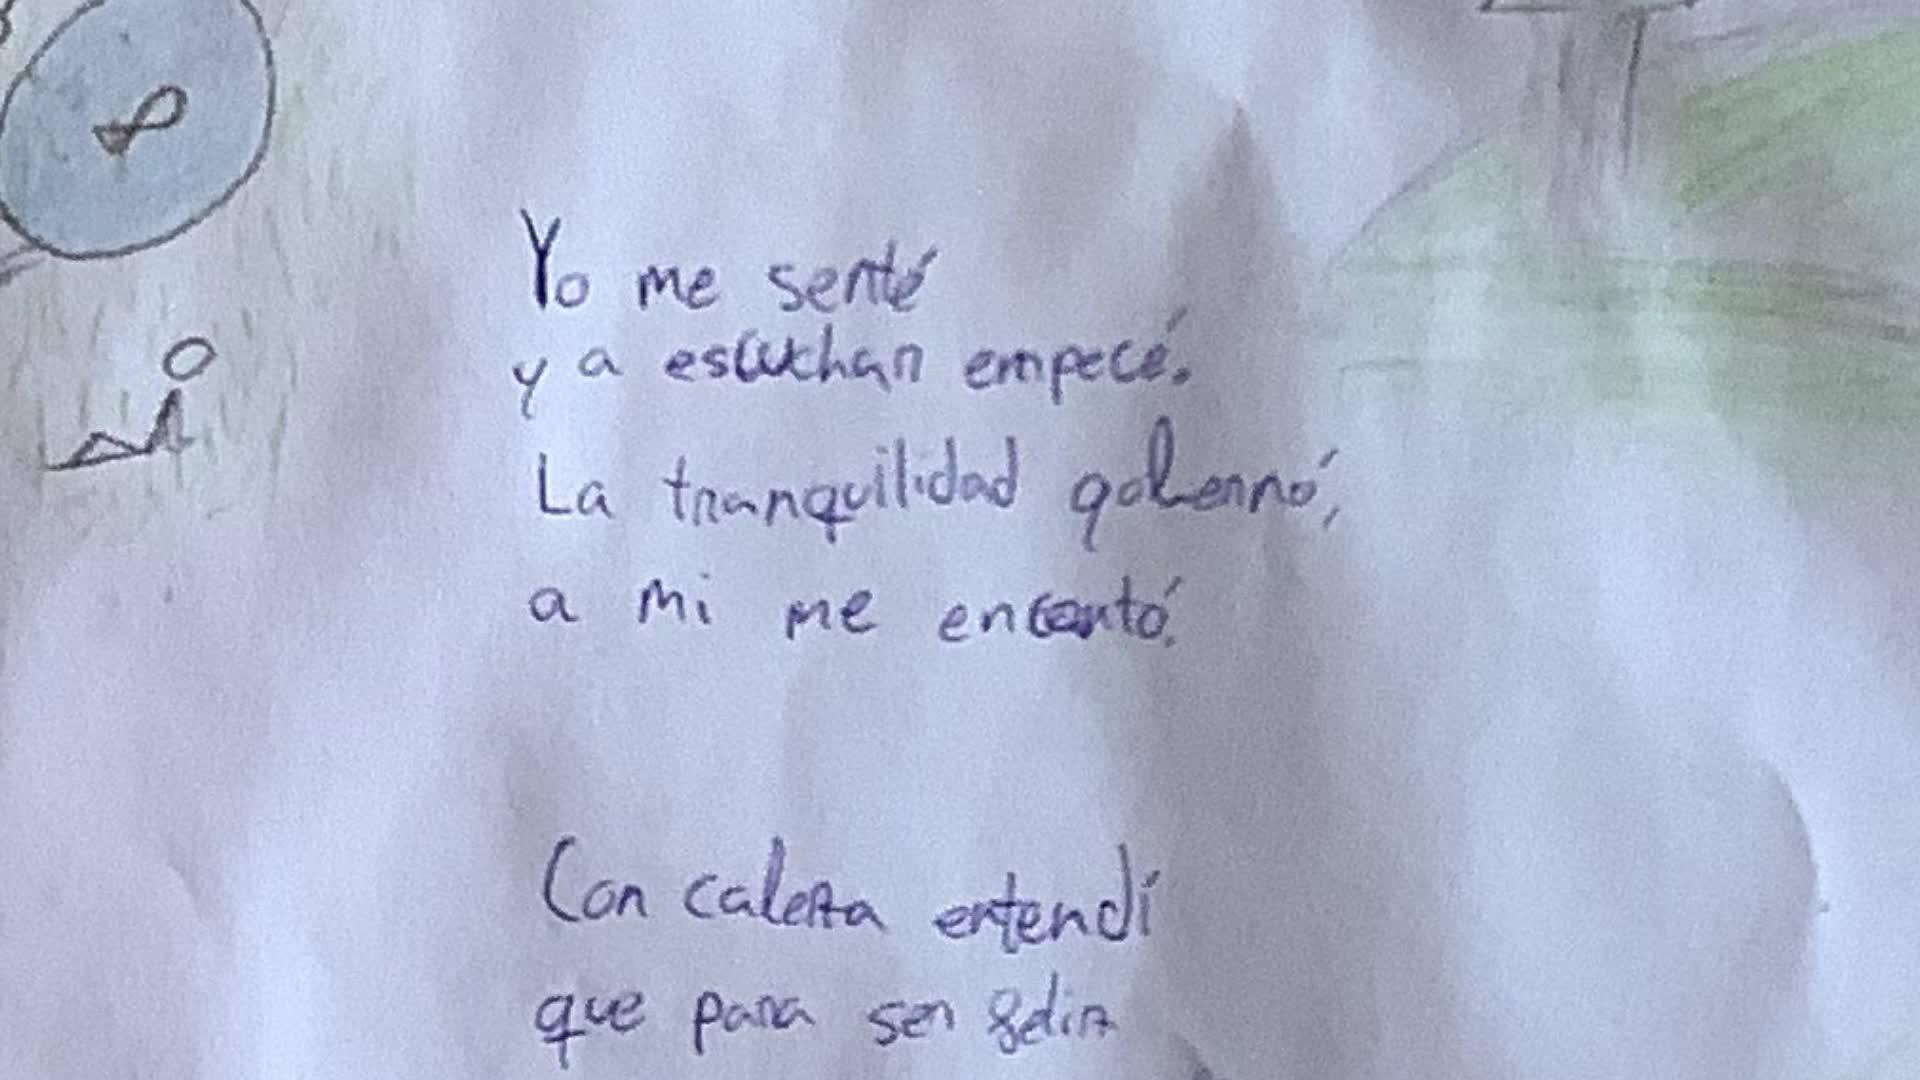 Yo me senté
y a escuchar empecé.
La tranquilidad gobernó,
a mi me encantó.
Con caleta entendí
que para ser feliz